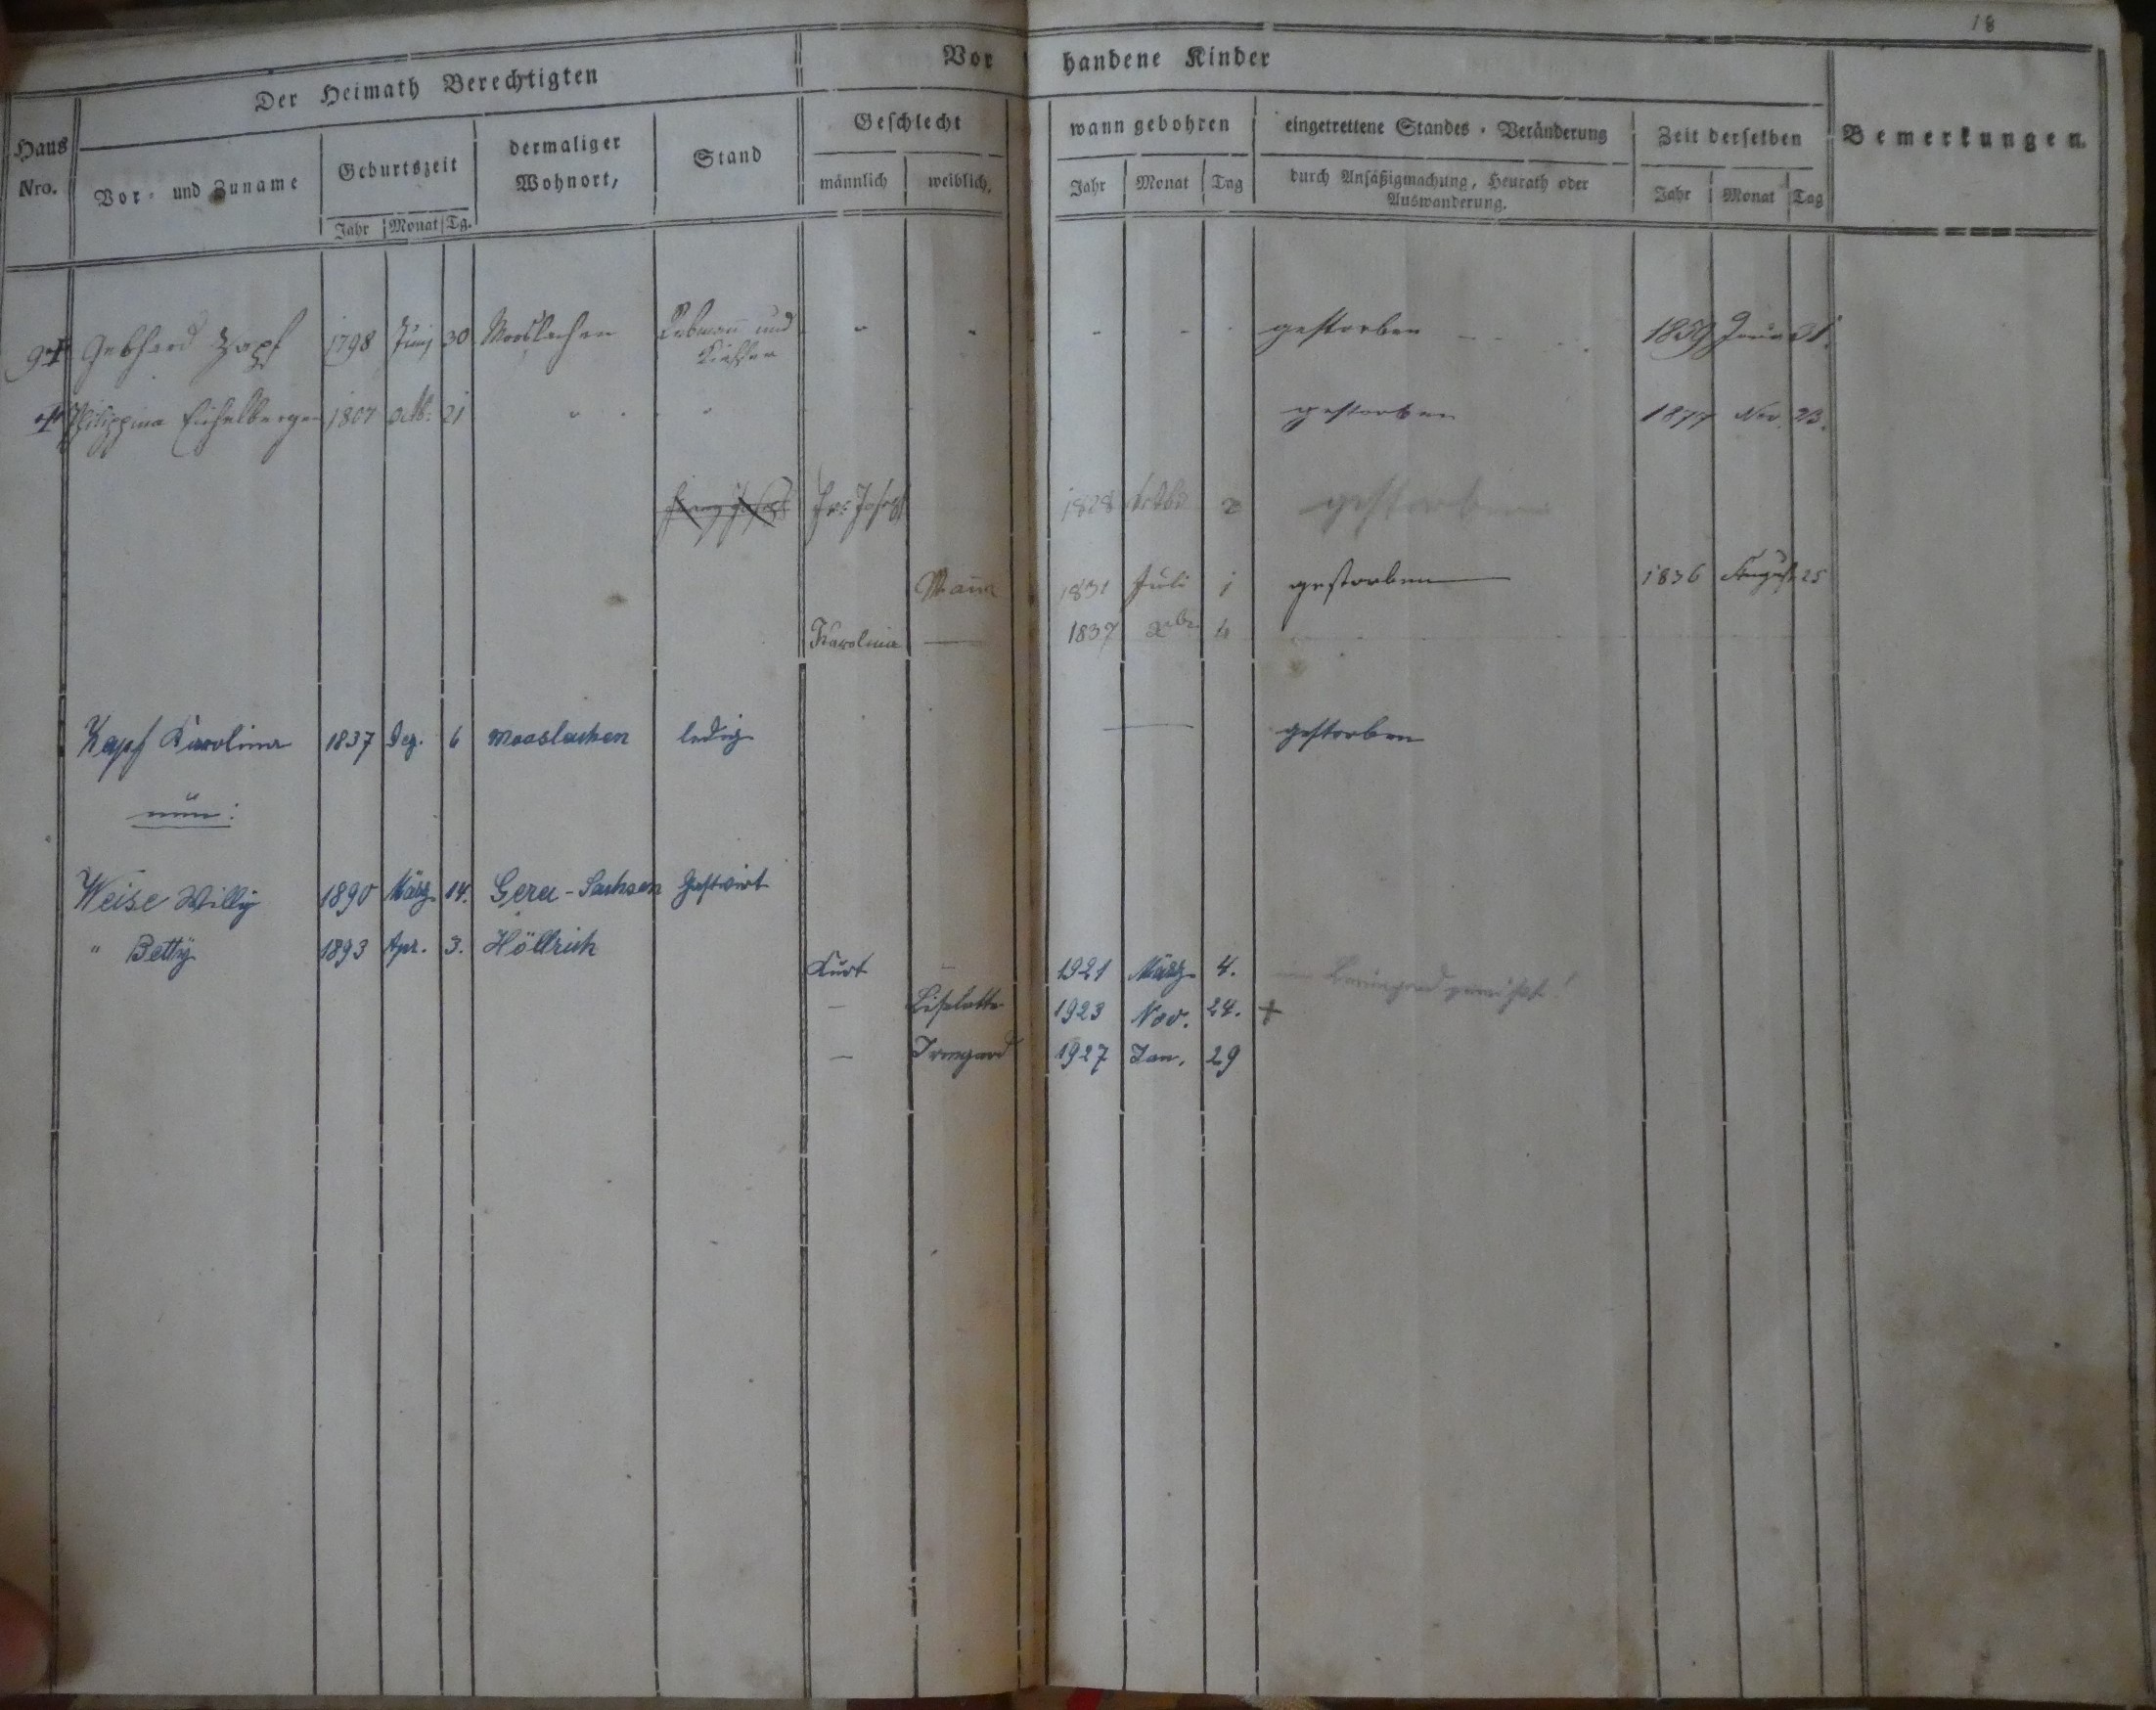 18
Der Heimath Berechtigten
Vorhandene Kinder
Haus Nro.
Vor- und Zuname
Geburtszeit
Jahr Monat Tg.
dermaliger Wohnort,
Stand
Geschlecht
männlich weiblich,
wann gebohren
Jahr Monat Tag
eingetrettene Standes-Veränderung
durch Ansäßigmachung, Heurath oder
Auswanderung.
Zeit derselben
Jahr Monat Tag
Bemerkungen.
9 Gebhard Zapf 1798 Junj 30 Mooslachen Rebmann und gestorben 1859
Philippina Eichelberger 1807 Octb. 21 " " gestorben 1877 Nov. 23.
Franz Joseph Frz Joseph 1828 2 gestorben
1831 Juli 1 gestorben 1836 August 25
Karolina — 1837 xbr
Zapf Karolina 1837 Dez. 6 Mooslachen ledig — gestorben
nun:
Weise Willy 1890 März 14. Gera-Sachsen Gastwirt
" Betty 1893 Apr. 3. Höllrich
Kurt – 1921 März 4.
– Liselotte 1923 Nov. 24. +
– Irmgard 1927 Jan. 29